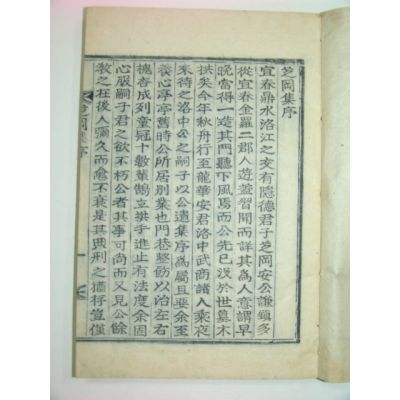 芝岡集序
宜春鼎水洛江之交有隱德君子芝岡安公謙鎭多
從宜春金羅二郡人遊葢習聞而詳其爲人意謂早
晩當得一造其門聽下風焉而公先已沒於世墓木
拱矣今年秋舟行至龍華安君洛中武商諸人乘夜
來待之洛中公之嗣子以公遺集序爲屬且要余至
養心亭亭舊時公所居別業也門巷整飭以治左右
槐杏成列童冠十數輩鵠立拱手進止有法度余固
心服嗣子君之欲不朽公者其事可尙而又見公餘
敎之在後人彌久而愈不衰是其典刑之猶存豈僅
芝岡集序